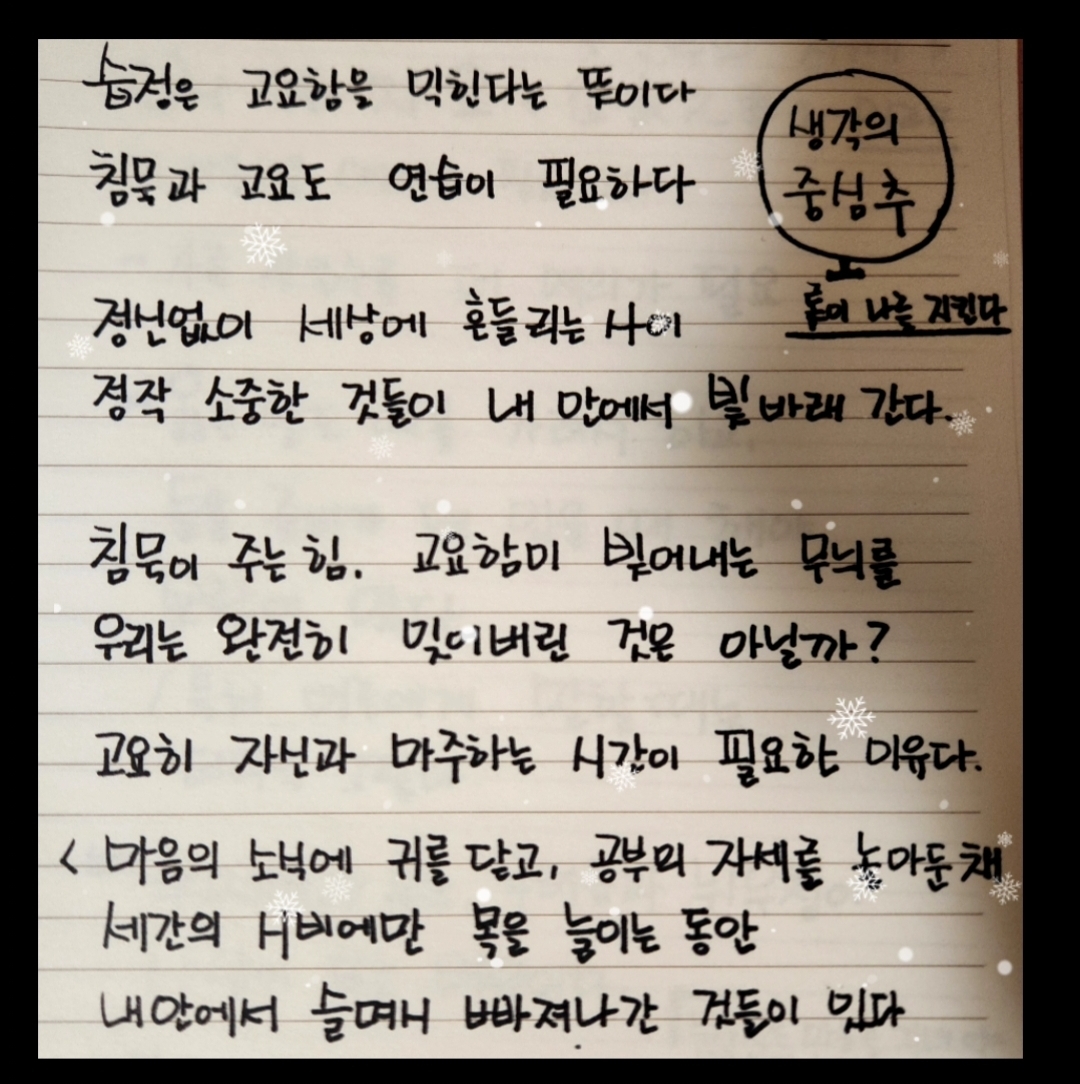 습정은 고요함을 익힌다는 뜻이다
침묵과 고요도 연습이 필요하다
생각의
중심추
이 나를 지킨다
정신없이 세상에 흔들리는 사이
정작 소중한 것들이 내 안에서 빛 바래 간다.
침묵이 주는 힘, 고요함이 빚어내는 무늬를
우리는 완전히 잊어버린 것은 아닐까?
고요히 자신과 마주하는 시간이 필요한 이유다.
< 마음의 소식에 귀를 닫고, 공부의 자세를 놓아둔 채
세간의 시비에만 목을 늘이는 동안
내 안에서 슬며시 빠져나간 것들이 있다